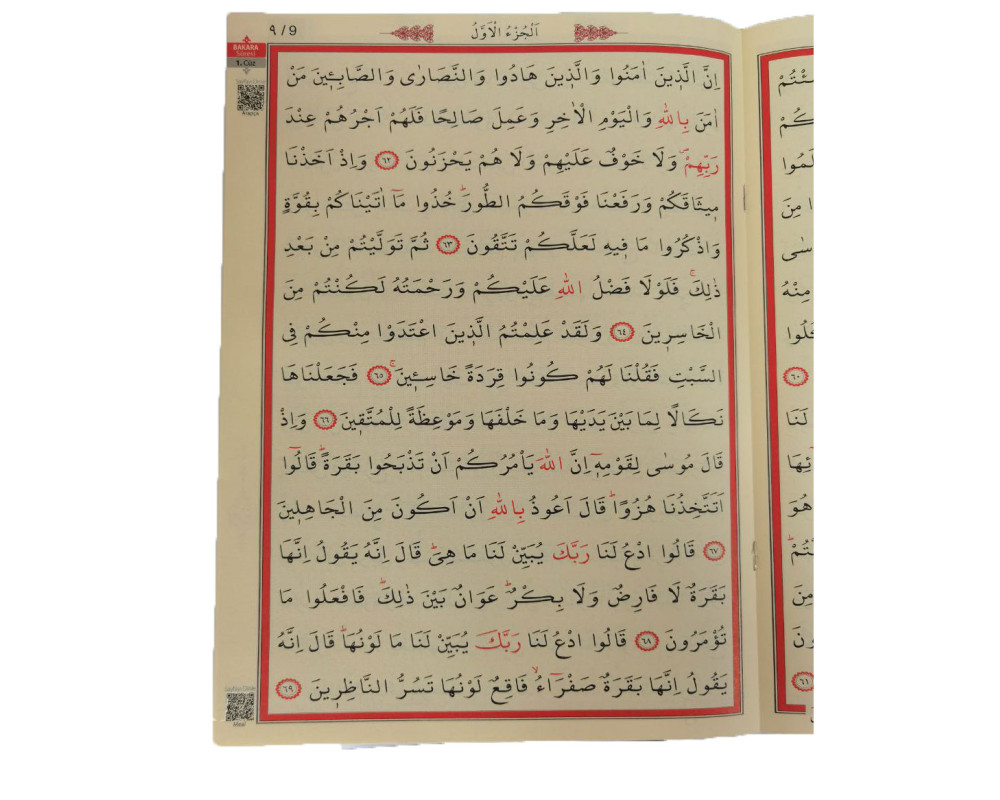 ٩ / 9
اَلْجُزْءُ الْاَوَّلُ
BAKARA
Sûresi
1. Cüz
اِنَّ الَّذ۪ينَ اٰمَنُوا وَالَّذ۪ينَ هَادُوا وَالنَّصَارٰى وَالصَّابِـ۪ٔينَ مَنْ
اٰمَنَ بِاللّٰهِ وَالْيَوْمِ الْاٰخِرِ وَعَمِلَ صَالِحًا فَلَهُمْ اَجْرُهُمْ عِنْدَ
رَبِّهِمْۖ وَلَا خَوْفٌ عَلَيْهِمْ وَلَا هُمْ يَحْزَنُونَ ﴿٦٢﴾ وَاِذْ اَخَذْنَا
م۪يثَاقَكُمْ وَرَفَعْنَا فَوْقَكُمُ الطُّورَۜ خُذُوا مَٓا اٰتَيْنَاكُمْ بِقُوَّةٍ
وَاذْكُرُوا مَا ف۪يهِ لَعَلَّكُمْ تَتَّقُونَ ﴿٦٣﴾ ثُمَّ تَوَلَّيْتُمْ مِنْ بَعْدِ
ذٰلِكَۚ فَلَوْلَا فَضْلُ اللّٰهِ عَلَيْكُمْ وَرَحْمَتُهُ لَكُنْتُمْ مِنَ
الْخَاسِر۪ينَ ﴿٦٤﴾ وَلَقَدْ عَلِمْتُمُ الَّذ۪ينَ اعْتَدَوْا مِنْكُمْ فِي
السَّبْتِ فَقُلْنَا لَهُمْ كُونُوا قِرَدَةً خَاسِـ۪ٔينَۚ ﴿٦٥﴾ فَجَعَلْنَاهَا
نَكَالًا لِمَا بَيْنَ يَدَيْهَا وَمَا خَلْفَهَا وَمَوْعِظَةً لِلْمُتَّق۪ينَ ﴿٦٦﴾ وَاِذْ
قَالَ مُوسٰى لِقَوْمِه۪ٓ اِنَّ اللّٰهَ يَأْمُرُكُمْ اَنْ تَذْبَحُوا بَقَرَةًۜ قَالُٓوا
اَتَتَّخِذُنَا هُزُوًاۜ قَالَ اَعُوذُ بِاللّٰهِ اَنْ اَكُونَ مِنَ الْجَاهِل۪ينَ
﴿٦٧﴾ قَالُوا ادْعُ لَنَا رَبَّكَ يُبَيِّنْ لَنَا مَا هِيَۜ قَالَ اِنَّهُ يَقُولُ اِنَّهَا
بَقَرَةٌ لَا فَارِضٌ وَلَا بِكْرٌۜ عَوَانٌ بَيْنَ ذٰلِكَۜ فَافْعَلُوا مَا
تُؤْمَرُونَ ﴿٦٨﴾ قَالُوا ادْعُ لَنَا رَبَّكَ يُبَيِّنْ لَنَا مَا لَوْنُهَاۜ قَالَ اِنَّهُ
يَقُولُ اِنَّهَا بَقَرَةٌ صَفْرَٓاءُۙ فَاقِعٌ لَوْنُهَا تَسُرُّ النَّاظِر۪ينَ ﴿٦٩﴾